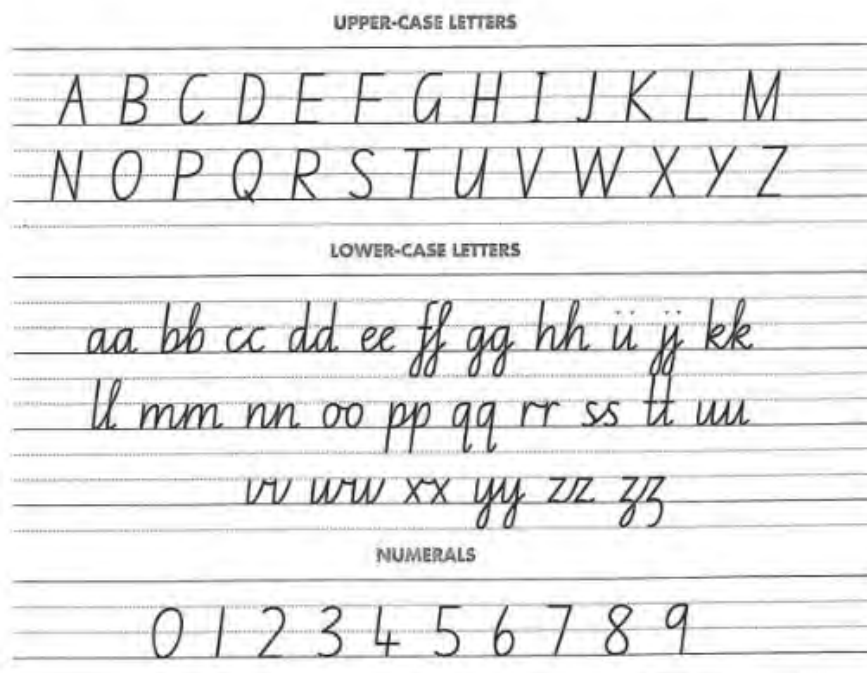 UPPER-CASE LETTERS
A B C D E F G H I J K L M
N O P Q R S T U V W X Y Z
LOWER-CASE LETTERS
aa bb cc dd ee ff gg hh ii jj kk
ll mm nn oo pp qq rr ss tt uu
vv ww xx yy zz zz
NUMERALS
0 1 2 3 4 5 6 7 8 9